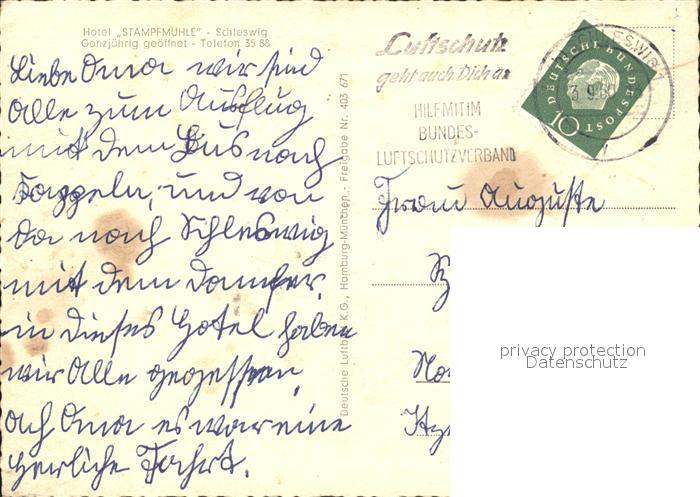 Hotel „STAMPFMÜHLE" - Schleswig
Ganzjährig geöffnet - Telefon 35 88
Liebe Oma wir sind
Alle zum Ausflug
mit dem Bus nach
und von
da nach Schleswig
mit dem Dampfer,
in dieses Hotel haben
wir Alle gegessen,
ach Oma es war eine
herrliche Fahrt.
Deutsche Luftbild K.G., Hamburg-München - Freigabe Nr. 403 671
Luftschutz
geht auch Dich an
HILF MIT IM
BUNDES-
LUFTSCHUTZVERBAND
SCHLESWIG 1
DEUTSCHE BUNDESPOST
10
Frau Auguste
privacy protection
Datenschutz